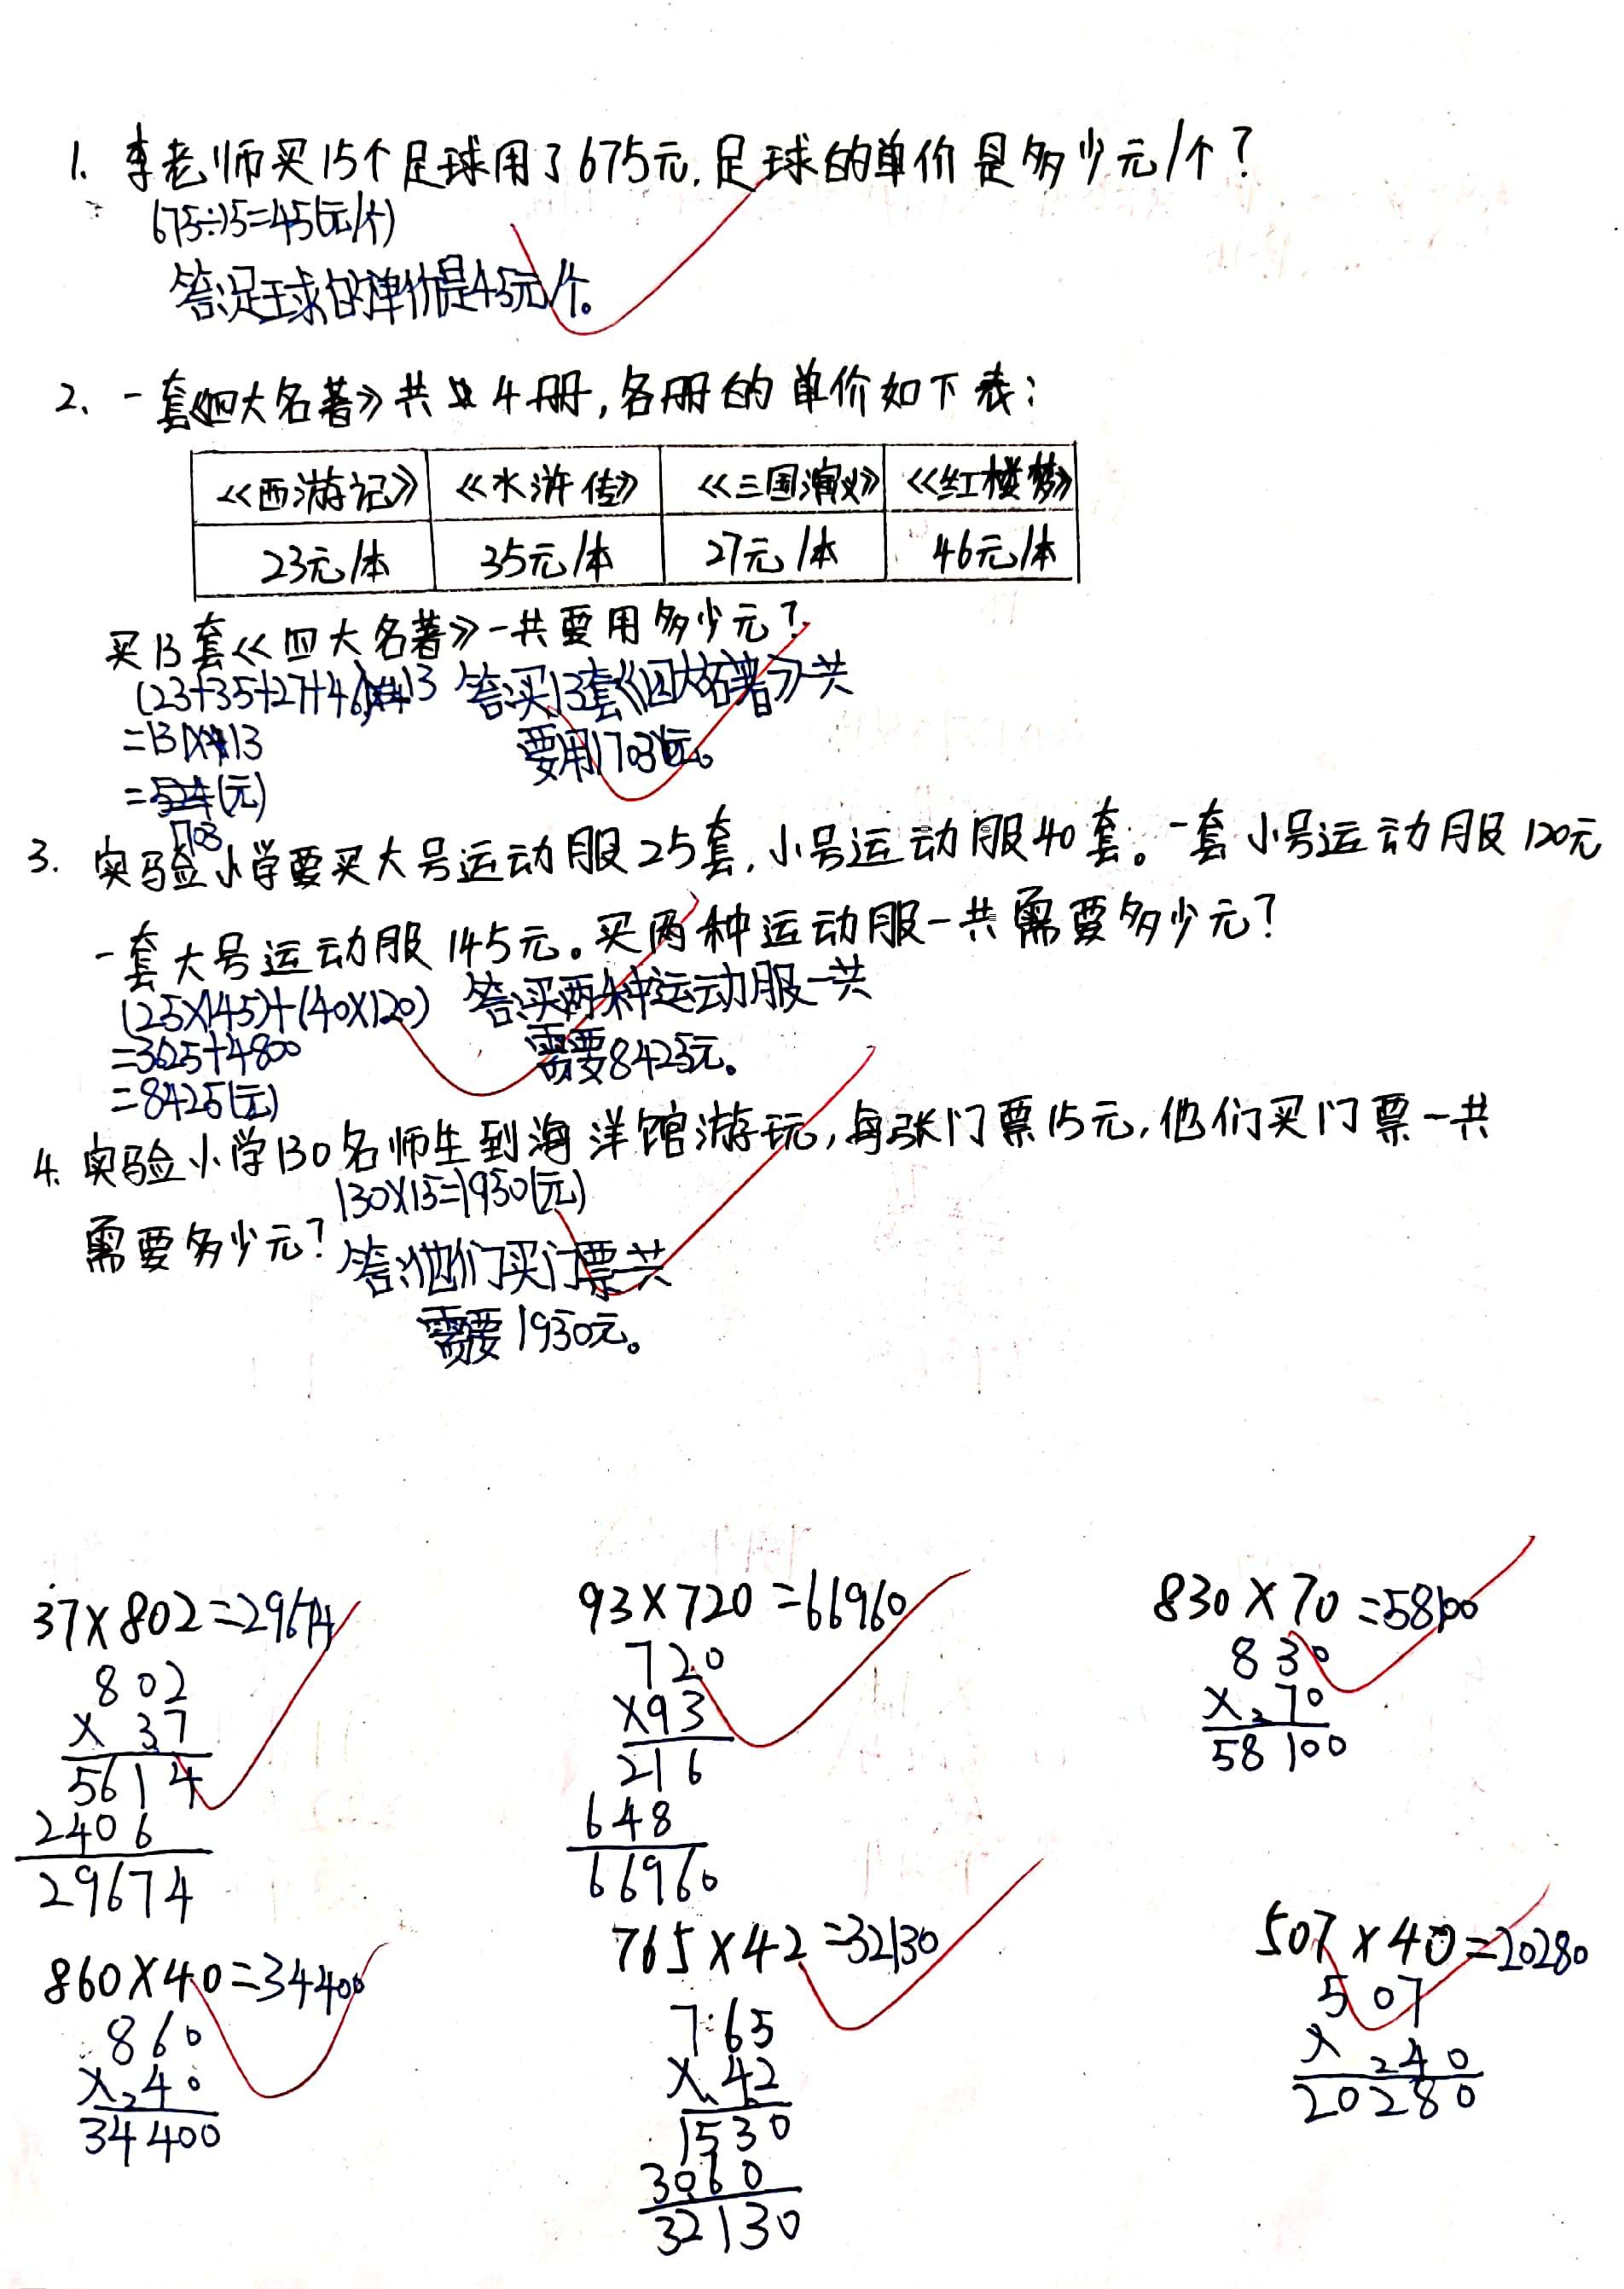 1、李老师买15个足球用了675元,足球的单价是多少元/个?
675÷15=45(元/个)
答:足球的单价是45元/个。
2、一套《四大名著》共 4册,各册的单价如下表:
《西游记》 《水浒传》 《三国演义》 《红楼梦》
23元/本 35元/本 27元/本 46元/本
买13套《四大名著》一共要用多少元?
(23+35+27+46)×13
=131×13
=1703(元)
答:买13套《四大名著》一共
要用1703元。
3. 实验小学要买大号运动服25套,小号运动服40套。一套小号运动服120元
一套大号运动服145元。买两种运动服一共需要多少元?
(25×145)+(40×120)
=3625+4800
=8425(元)
答:买两种运动服一共
需要8425元。
4. 实验小学130名师生到海洋馆游玩,每张门票15元,他们买门票一共
需要多少元?
130×15=1950(元)
答:他们买门票一共
需要1950元。
37×802=29674
802
× 37
5614
2406
29674
93×720=66960
720
×93
216
648
66960
830×70=58100
830
×270
58100
860×40=34400
860
×240
34400
765×42=32130
765
×42
1530
3060
32130
507×40=20280
507
× 240
20280